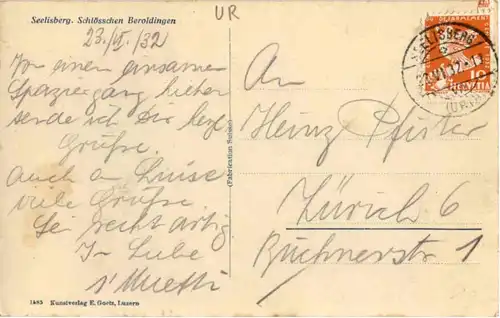 Seelisberg. Schlösschen Beroldingen
UR
23./VI./32
Von einem einsamen
Spaziergang hieher
sende ich Dir herzl.
Grüsse.
auch an Luise
viele Grüsse.
Sei recht artig
In Liebe
s'Muetti
(Fabrication Suisse)
1485 Kunstverlag E. Goetz, Luzern
SEELISBERG
(URI)
10
An
Heinz Pfister
Zürich 6
Büchnerstr. 1